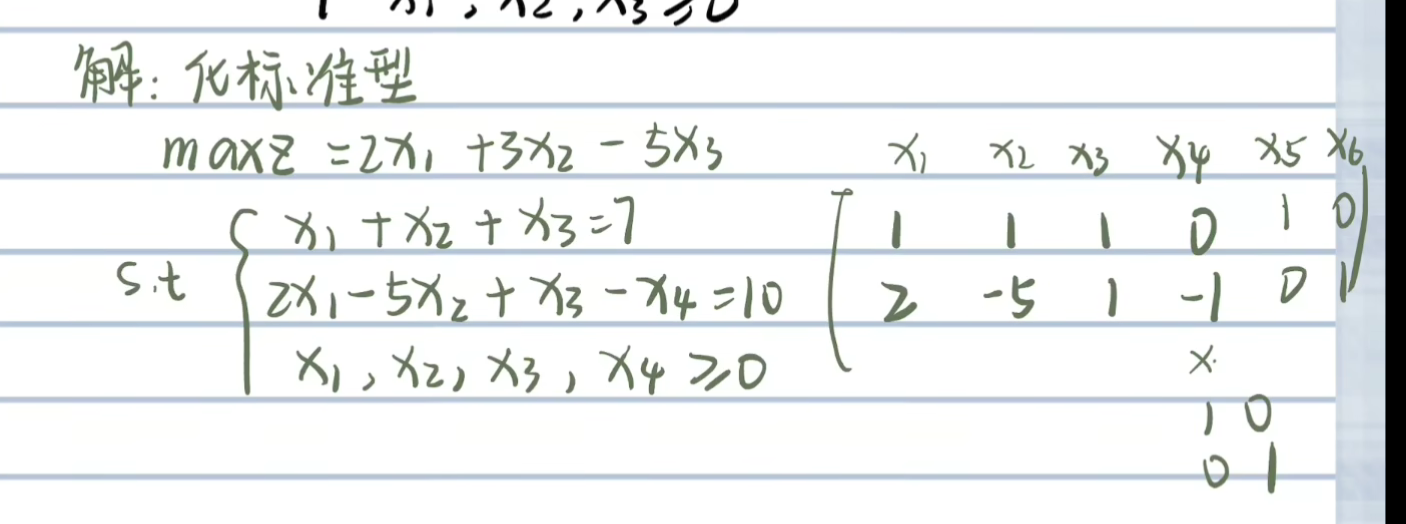 x₁, x₂, x₃ ≥ 0
解: 化标准型
max z = 2x₁ + 3x₂ - 5x₃
s.t
x₁ + x₂ + x₃ = 7
2x₁ - 5x₂ + x₃ - x₄ = 10
x₁, x₂, x₃, x₄ ≥ 0
x₁ x₂ x₃ x₄ x₅ x₆
1 1 1 0 1 0
2 -5 1 -1 0 1
x.
1 0
0 1